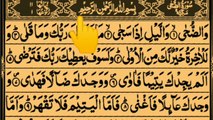 بِسْمِ اللهِ الرَّحْمٰنِ الرَّحِيْمِ
وَالضُّحٰى وَالَّيْلِ اِذَا سَجٰى مَا وَدَّعَكَ رَبُّكَ وَمَا قَلٰى وَ
لَلْاٰخِرَةُ خَيْرٌ لَّكَ مِنَ الْاُوْلٰى وَلَسَوْفَ يُعْطِيْكَ رَبُّكَ فَتَرْضٰى
اَلَمْ يَجِدْكَ يَتِيْمًا فَاٰوٰى وَوَجَدَكَ ضَآلًّا فَهَدٰى وَ
وَجَدَكَ عَآئِلًا فَاَغْنٰى فَاَمَّا الْيَتِيْمَ فَلَا تَقْهَرْ وَاَمَّا